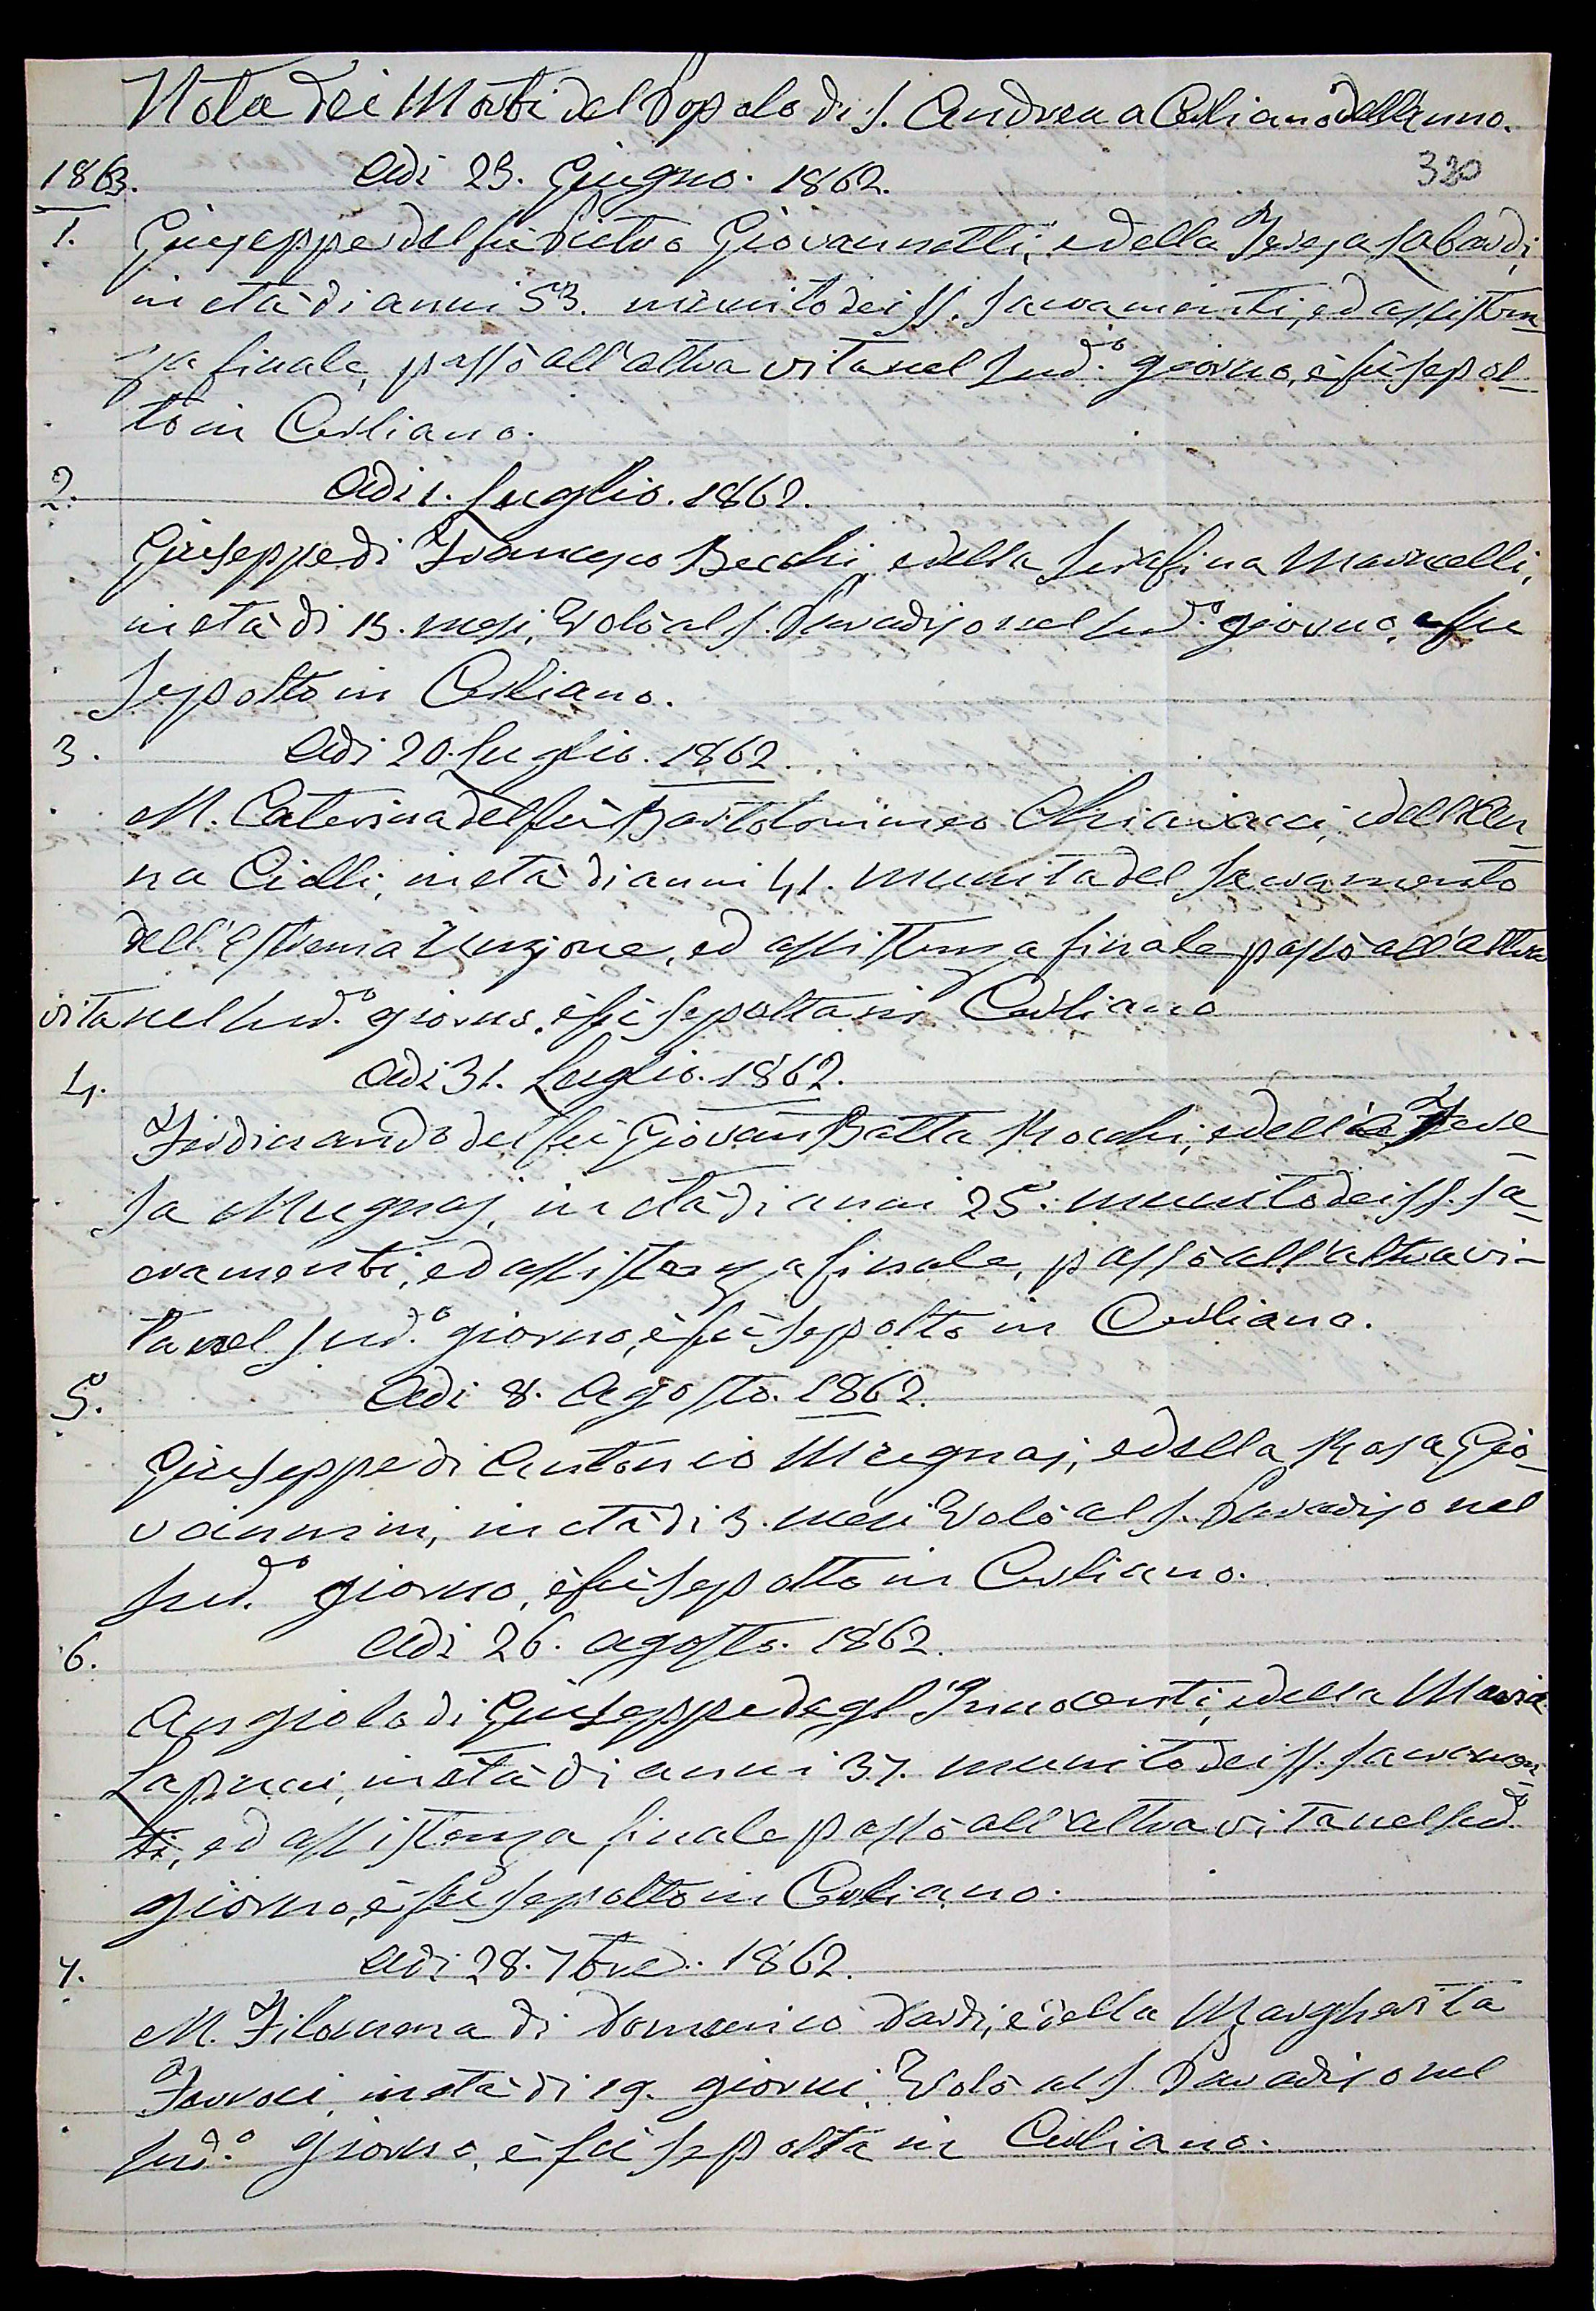 Nota dei Morti del Popolo di S. Andrea a Cerliano dell'anno.
1863. Adi 23. Giugno. 1862. 320
1. Giuseppe del fù Pietro Giovannetti, e della Teresa Sabardi,
in età di anni 53. munito dei SS. Sacramenti, ed assisten-
za finale, passò all'altra vita nel sud.º giorno, e fù sepol-
to in Cerliano.
2. Adi 1. Luglio. 1862.
Giuseppe di Francesco Becchi, e della Serafina Marcelli,
in età di 13. mesi, Volò al S. Paradiso nel sud.º giorno, e fu
sepolto in Cerliano.
3. Adi 20. Luglio. 1862
M. Caterina del fù Bartolommeo Chiavacci, e dell'An-
na Ciolli, in età di anni 41. munita del Sacramento
dell'Estrema Unzione, ed assistenza finale passò all'altra
vita nel sud.º giorno, e fù sepolta in Cerliano
4. Adi 31. Luglio. 1862.
Ferdinando del fù Giovan Batta Rocchi, e della Tere-
sa Mugnaj, in età di anni 25. munito dei SS. Sa-
cramenti, ed assistenza finale, passò all'altra vi-
ta nel sud.º giorno, e fù sepolto in Cerliano.
5. Adi 8. Agosto. 1862.
Giuseppe di Antonio Mugnaj, e della Rosa Gio-
vannini, in età di 3. mesi Volò al S. Paradiso nel
sud.º giorno, e fù sepolto in Cerliano.
6. Adi 26. Agosto. 1862.
Angiolo di Giuseppe degl'Innocenti, e della Maria
Lapucci, in età di anni 37. munito dei SS. Sacramen-
ti, ed assistenza finale passò all'altra vita nel sud.º
giorno, e fù sepolto in Cerliano.
7. Adi 28. 7bre. 1862.
M. Filomena di Domenico Dardi, e della Margherita
in età di 19. giorni, Volò al S. Paradiso nel
sud.º giorno, e fù sepolta in Cerliano.